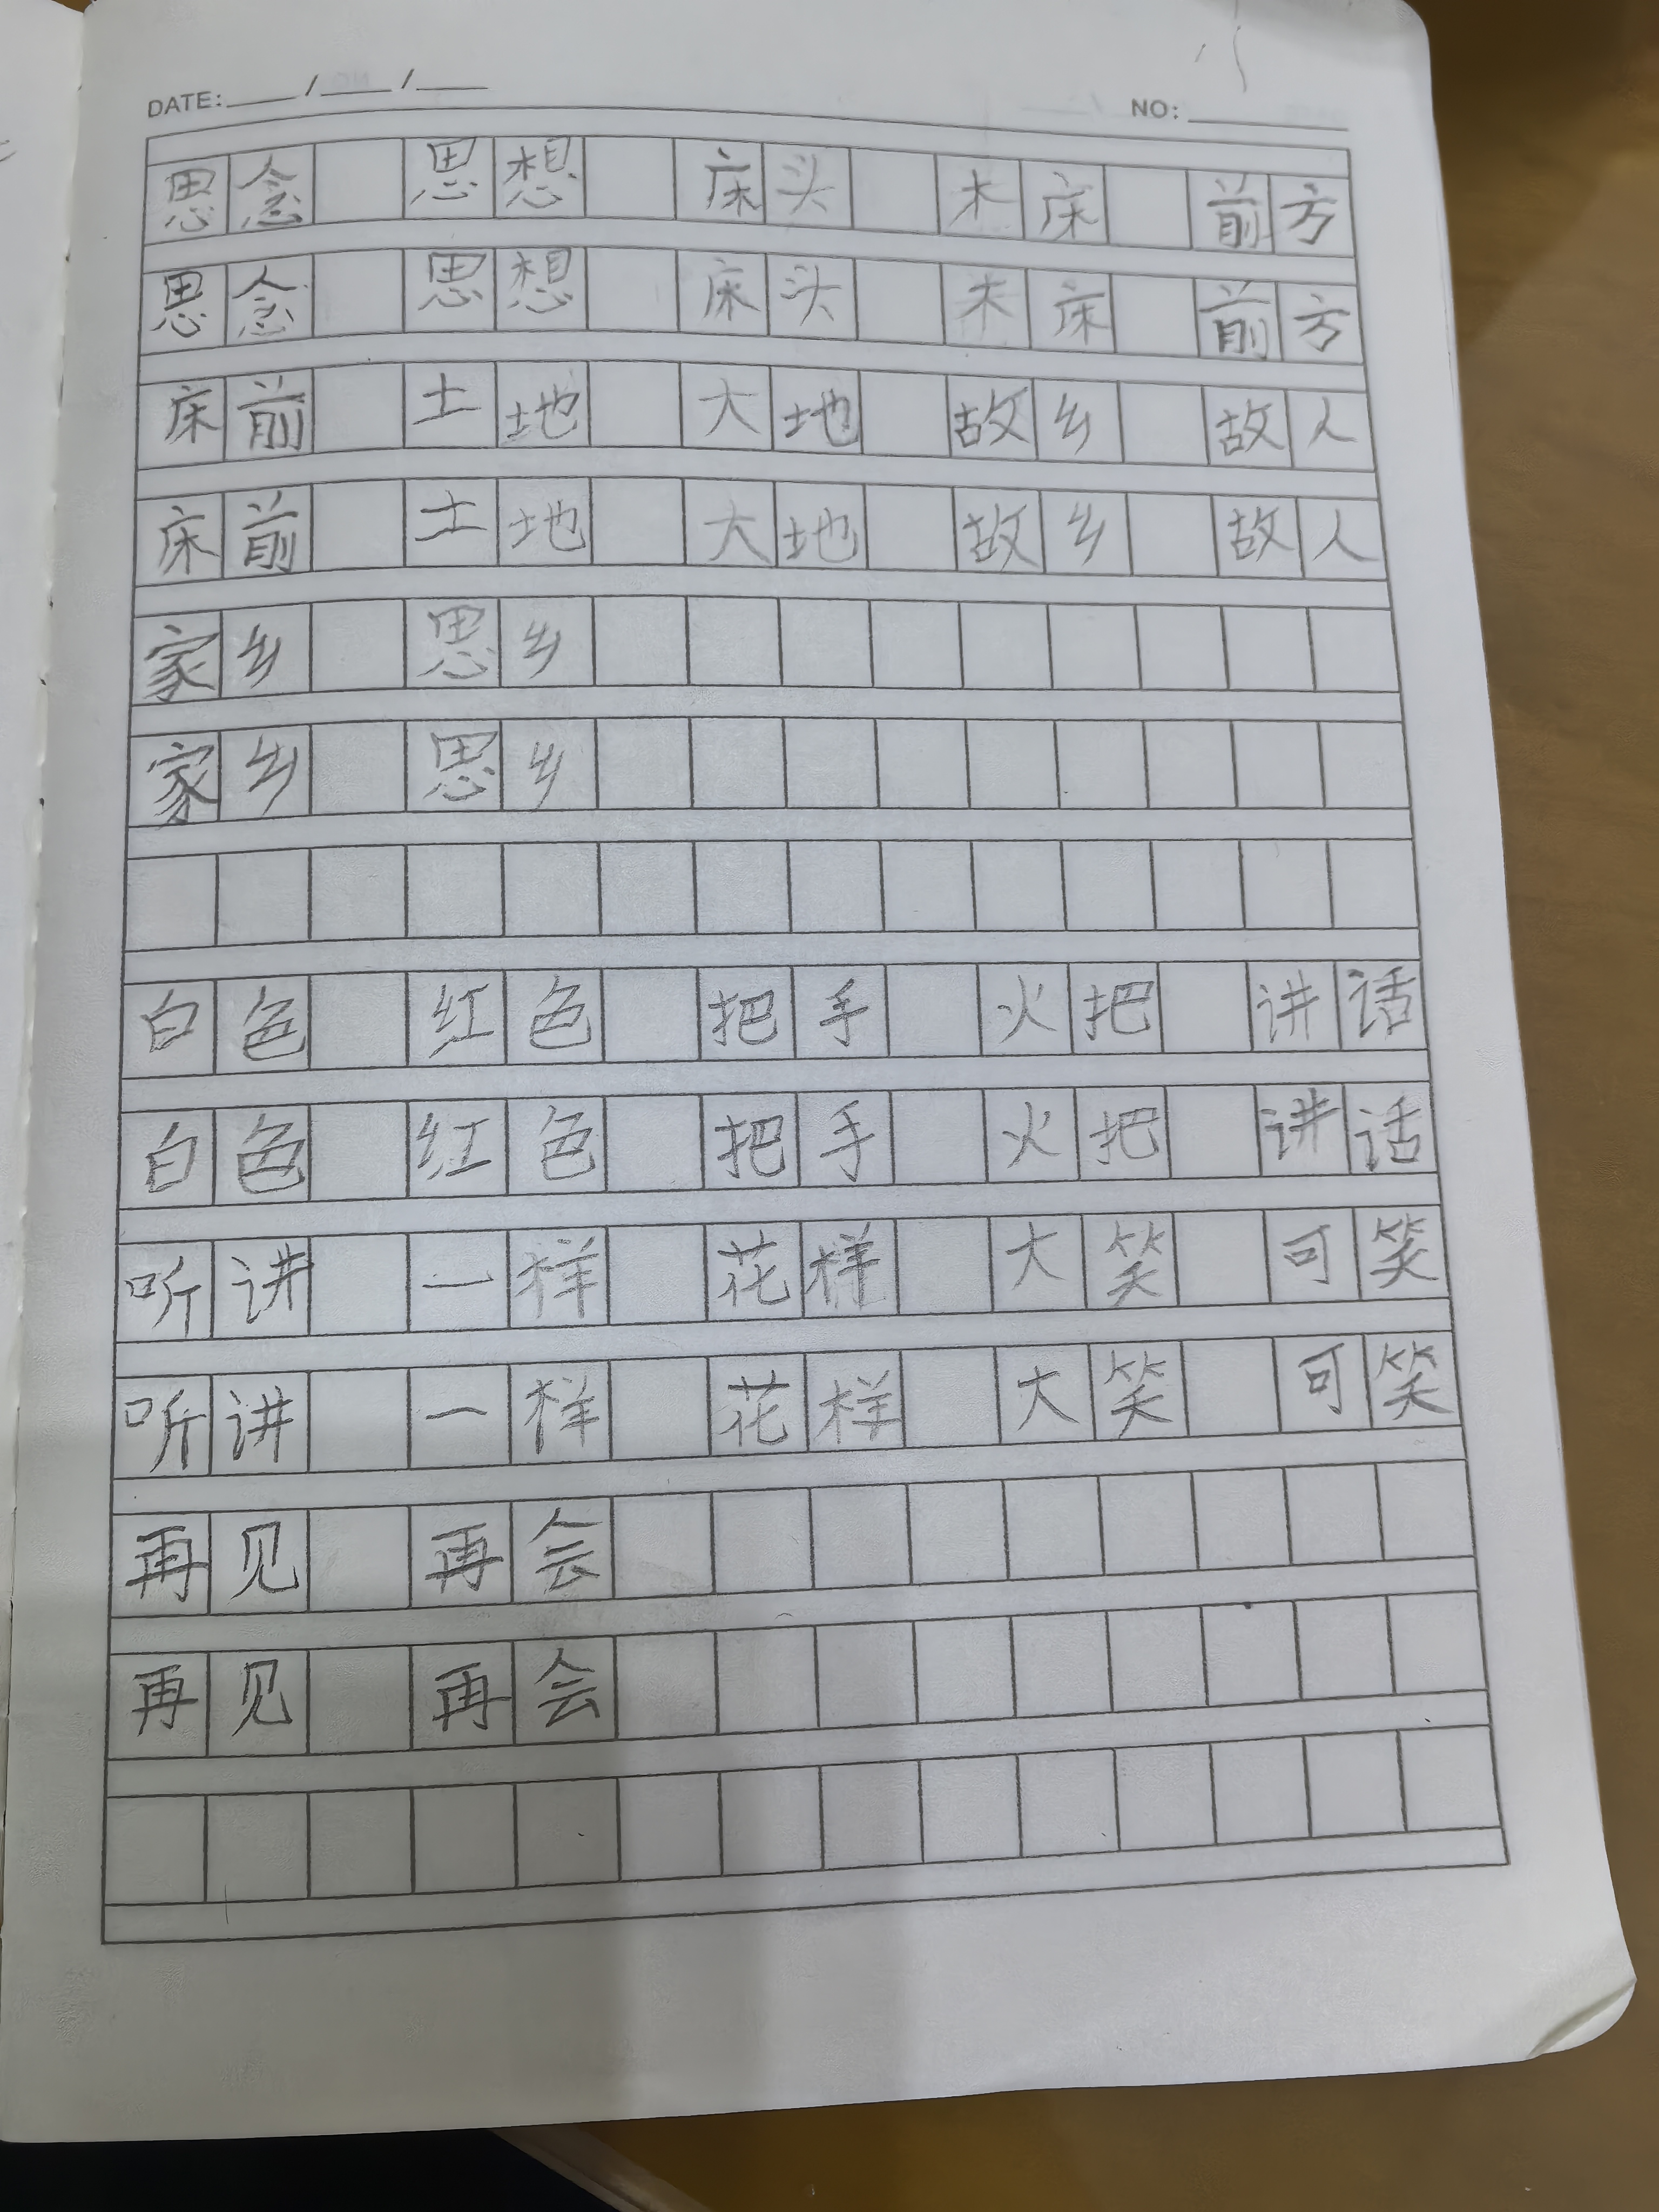 DATE: / / NO:
思念 思想 床头 木床 前方
思念 思想 床头 木床 前方
床前 土地 大地 故乡 故人
床前 土地 大地 故乡 故人
家乡 思乡
家乡 思乡
白色 红色 把手 火把 讲话
白色 红色 把手 火把 讲话
听讲 一样 花样 大笑 可笑
听讲 一样 花样 大笑 可笑
再见 再会
再见 再会